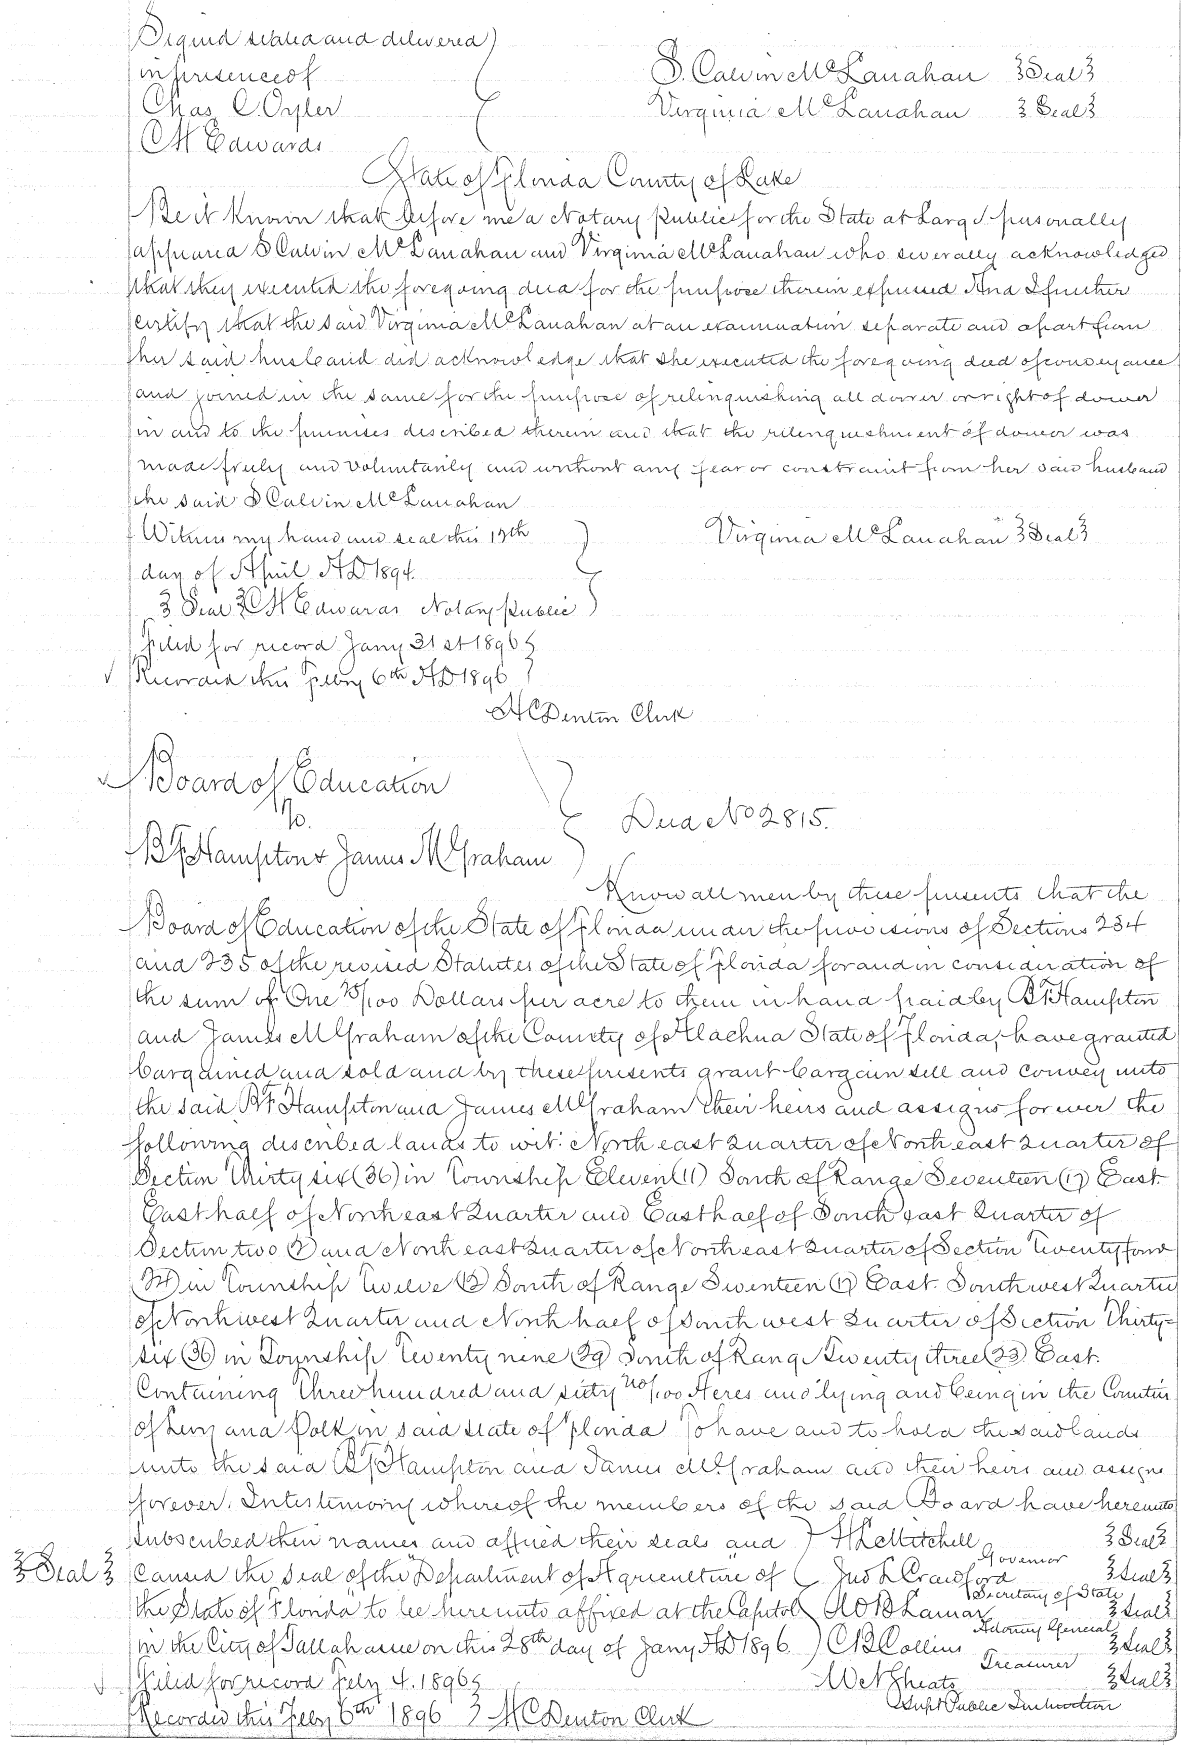 Signed sealed and delivered
in presence of
S. Calvin McLanahan Seal
Chas C. Oyler
Virginia McLanahan Seal
C H Edwards
State of Florida County of Lake
Be it Known that before me a Notary Public for the State at Large personally
appeared S Calvin McLanahan and Virginia McLanahan who severally acknowledged
that they executed the foregoing deed for the purpose therein expressed And I further
certify that the said Virginia McLanahan at an examination separate and apart from
her said husband did acknowledge that she executed the foregoing deed of conveyance
and joined in the same for the purpose of relinquishing all dower or right of dower
in and to the premises described therein and that the relinquishment of dower was
made freely and voluntarily and without any fear or constraint from her said husband
the said S Calvin McLanahan
Witness my hand and seal this
Virginia McLanahan Seal
day of April AD 1894.
Seal C H Edwards Notary Public
Filed for record Jany 31st 1896
Recorded this Feby 6th AD 1896
H C Denton Clerk
Board of Education
To.
Deed No 2815.
B F Hampton & James M Graham
Know all men by these presents that the
Board of Education of the State of Florida under the provisions of Sections 234
and 235 of the revised Statutes of the State of Florida for and in consideration of
the sum of One /100 Dollars per acre to them in hand paid by B F Hampton
and James M Graham of the County of Alachua State of Florida, have granted
bargained and sold and by these presents grant bargain sell and convey unto
the said B F Hampton and James M Graham their heirs and assigns forever the
following described lands to wit: North east Quarter of North east Quarter of
Section Thirty six (36) in Township Eleven (11) South of Range Seventeen (17) East.
East half of North east Quarter and East half of South east Quarter of
Section two (2) and North east Quarter of North east Quarter of Section Twenty four
(24) in Township Twelve (12) South of Range Seventeen (17) East. South west Quarter
of North west Quarter and North half of South west Quarter of Section Thirty=
six (36) in Township Twenty nine (29) South of Range Twenty three (23) East.
Containing Three hundred and sixty no/100 Acres and lying and being in the Counties
of Levy and Polk in said State of Florida To have and to hold the said lands
unto the said B F Hampton and James M. Graham and their heirs and assigns
forever. In testimony whereof the members of the said Board have hereunto
subscribed their names and affixed their seals and H L Mitchell Seal
Governor
Seal caused the seal of the "Department of Agriculture of Jno L Crawford Seal
Secretary of State
the State of Florida" to be hereunto affixed at the Capitol W B Lamar Seal
Attorney General
in the City of Tallahassee on this 28th day of Jany AD 1896. C B Collins Seal
Treasurer
Filed for record Feby 4. 1896 W N Sheats Seal
Supt Public Instruction
Recorded this Feby 6th 1896 H C Denton Clerk